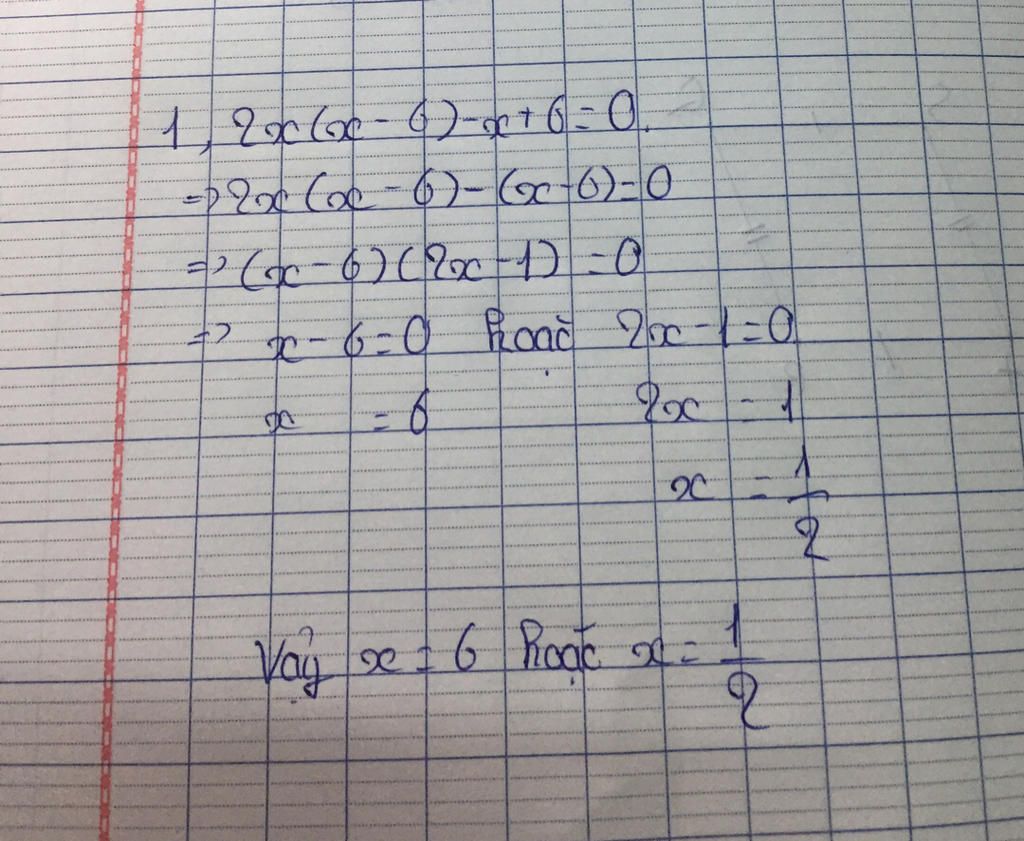 1, 2x(x - 6) - x + 6 = 0.
=> 2x(x - 6) - (x - 6) = 0
=> (x - 6)(2x - 1) = 0
=> x - 6 = 0 hoặc 2x - 1 = 0
x = 6 2x = 1
x = 1/2
Vậy x = 6 hoặc x = 1/2